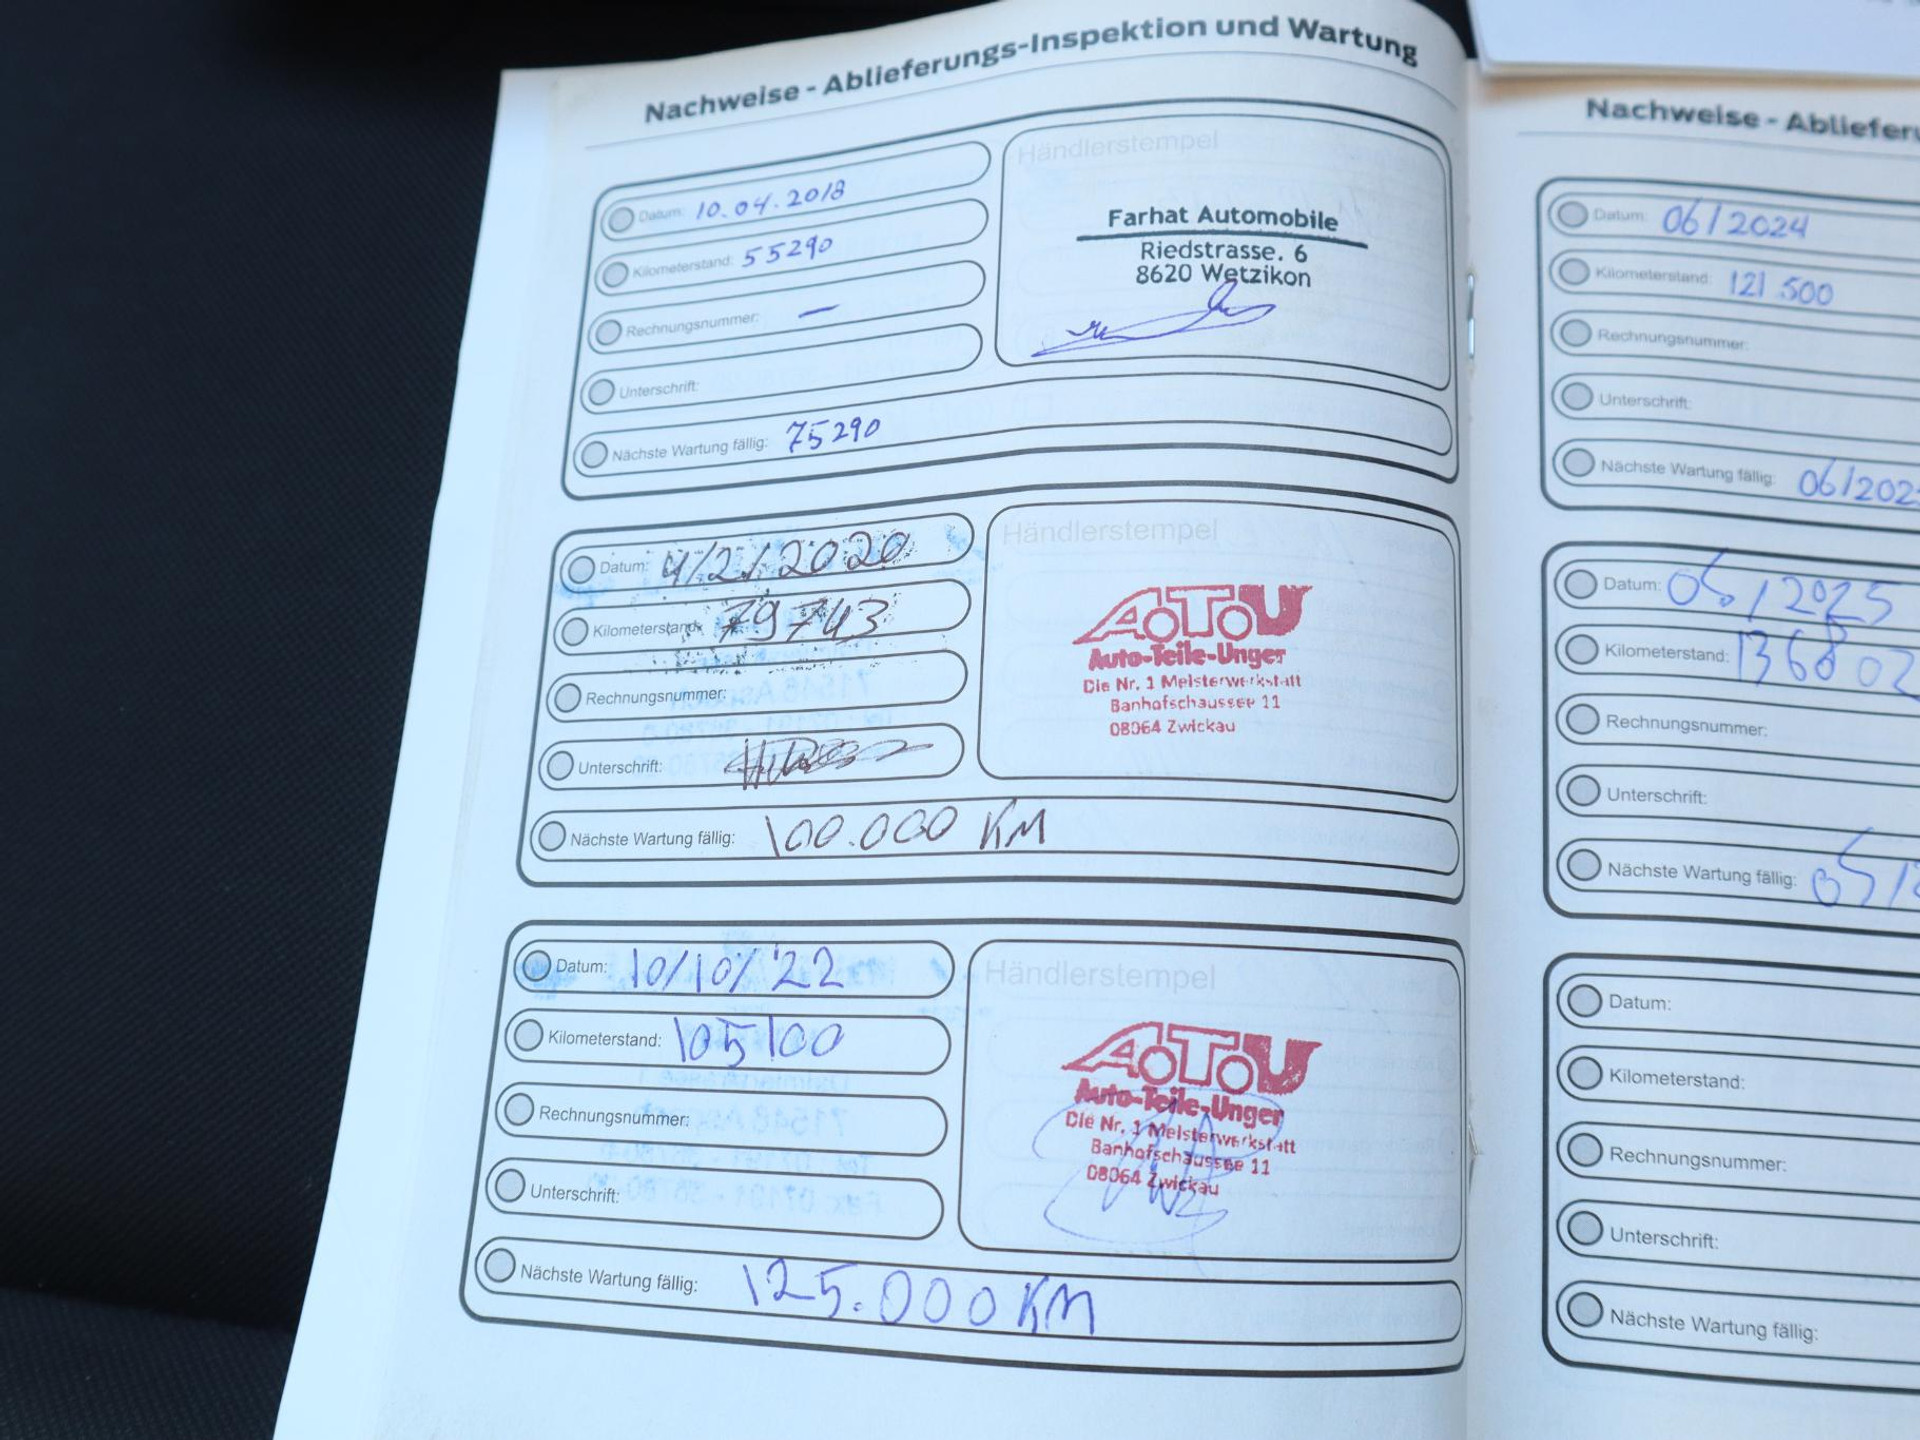 Nachweise - Ablieferungs-Inspektion und Wartung
Datum: 10.04.2018
Kilometerstand: 55290
Rechnungsnummer: —
Unterschrift:
Nächste Wartung fällig: 75290
Händlerstempel
Farhat Automobile
Riedstrasse. 6
8620 Wetzikon
Datum: 4/2/2020
Kilometerstand: 79743
Rechnungsnummer:
Unterschrift:
Nächste Wartung fällig: 100.000 KM
Händlerstempel
A.T.U
Auto-Teile-Unger
Die Nr. 1 Meisterwerkstatt
Banhofschaussee 11
08064 Zwickau
Datum: 10/10/'22
Kilometerstand: 105100
Rechnungsnummer:
Unterschrift:
Nächste Wartung fällig: 125.000 KM
Händlerstempel
A.T.U
Auto-Teile-Unger
Die Nr. 1 Meisterwerkstatt
Banhofschaussee 11
08064 Zwickau
Nachweise - Ablieferu
Datum: 06/2024
Kilometerstand: 121.500
Rechnungsnummer:
Unterschrift:
Nächste Wartung fällig: 06/202
Datum: 05/2025
Kilometerstand: 136802
Rechnungsnummer:
Unterschrift:
Nächste Wartung fällig: 05/2
Datum:
Kilometerstand:
Rechnungsnummer:
Unterschrift:
Nächste Wartung fällig: